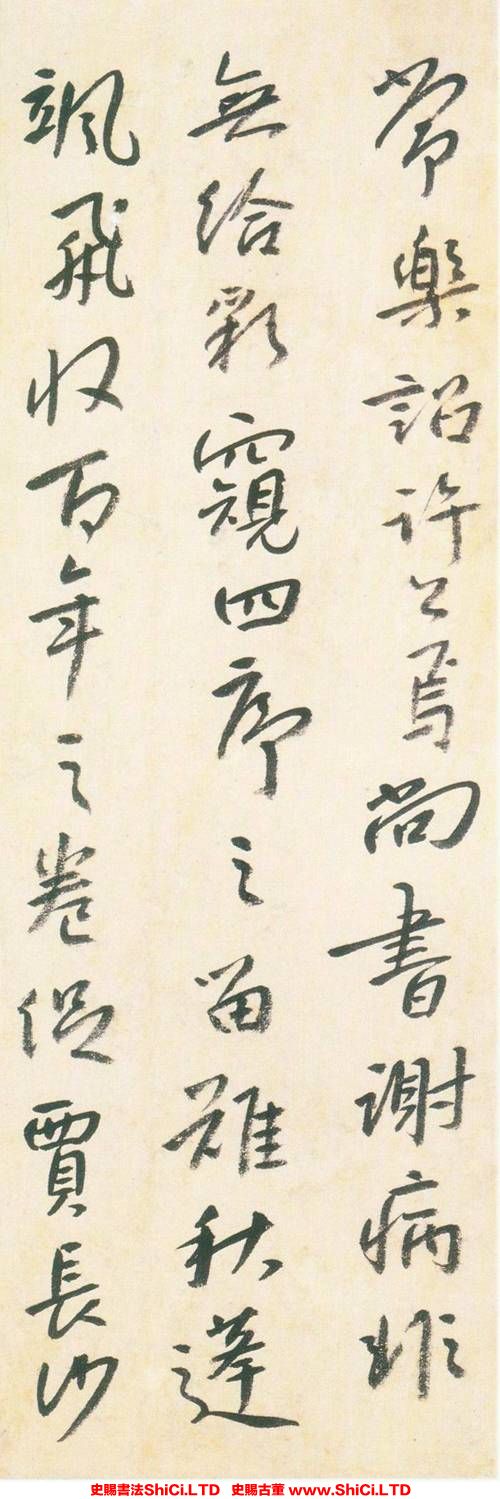 常樂詔許公焉尚書謝病非
無給彩窺四序之留難秋蓬
颯飛收百年之卷促賈長沙
史賜書法ShiCi.LTD 史賜古董 www.ShiCi.LTD